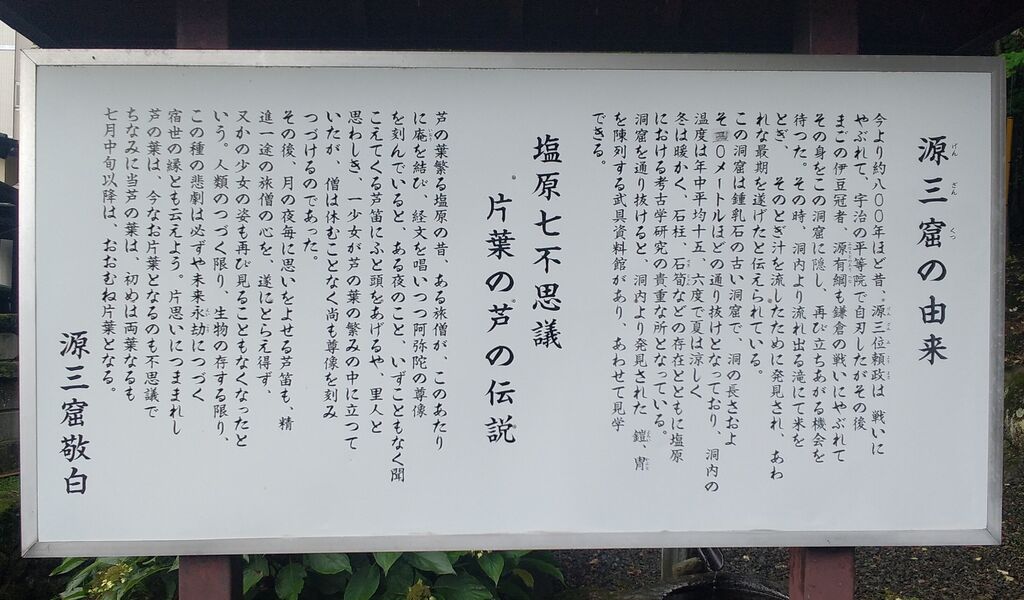 源三窟の由来
今より約八〇〇年ほど昔、源三位頼政は 戦いに
やぶれて、宇治の平等院で自刃したがその後
まごの伊豆冠者、源有綱も鎌倉の戦いにやぶれて
その身をこの洞窟に隠し、再び立ちあがる機会を
待つた。その時、洞内より流れ出る滝にて米を
とぎ、そのとぎ汁を流したために発見され、あわ
れな最期を遂げたと伝えられている。
この洞窟は鍾乳石の古い洞窟で、洞の長さおよ
そ 〇メートルほどの通り抜けとなっており、洞内の
温度は年中平均十五、六度で夏は涼しく
冬は暖かく、石柱、石筍などの存在とともに塩原
における考古学研究の貴重な所となっている。
洞窟を通り抜けると、洞内より発見された 鎧、冑
を陳列する武具資料館があり、あわせて見学
できる。
塩原七不思議
片葉の芦の伝説
芦の葉繁る塩原の昔、ある旅僧が、このあたり
に庵を結び、経文を唱いつつ阿弥陀の尊像
を刻んでいると、ある夜のこと、いずこともなく聞
こえてくる芦笛にふと頭をあげるや、里人と
思わしき、一少女が芦の葉の繁みの中に立つて
いたが、僧は休むことなく尚も尊像を刻み
つづけるのであった。
その後、月の夜毎に思いをよせる芦笛も、精
進一途の旅僧の心を、遂にとらえ得ず、
又かの少女の姿も再び見ることもなくなったと
いう。人類のつづく限り、生物の存する限り、
この種の悲劇は必ずや未来永劫につづく
宿世の縁とも云えよう。片思いにつままれし
芦の葉は、今なお片葉となるのも不思議で
ちなみに当芦の葉は、初めは両葉なるも
七月中旬以降は、おおむね片葉となる。
源三窟敬白